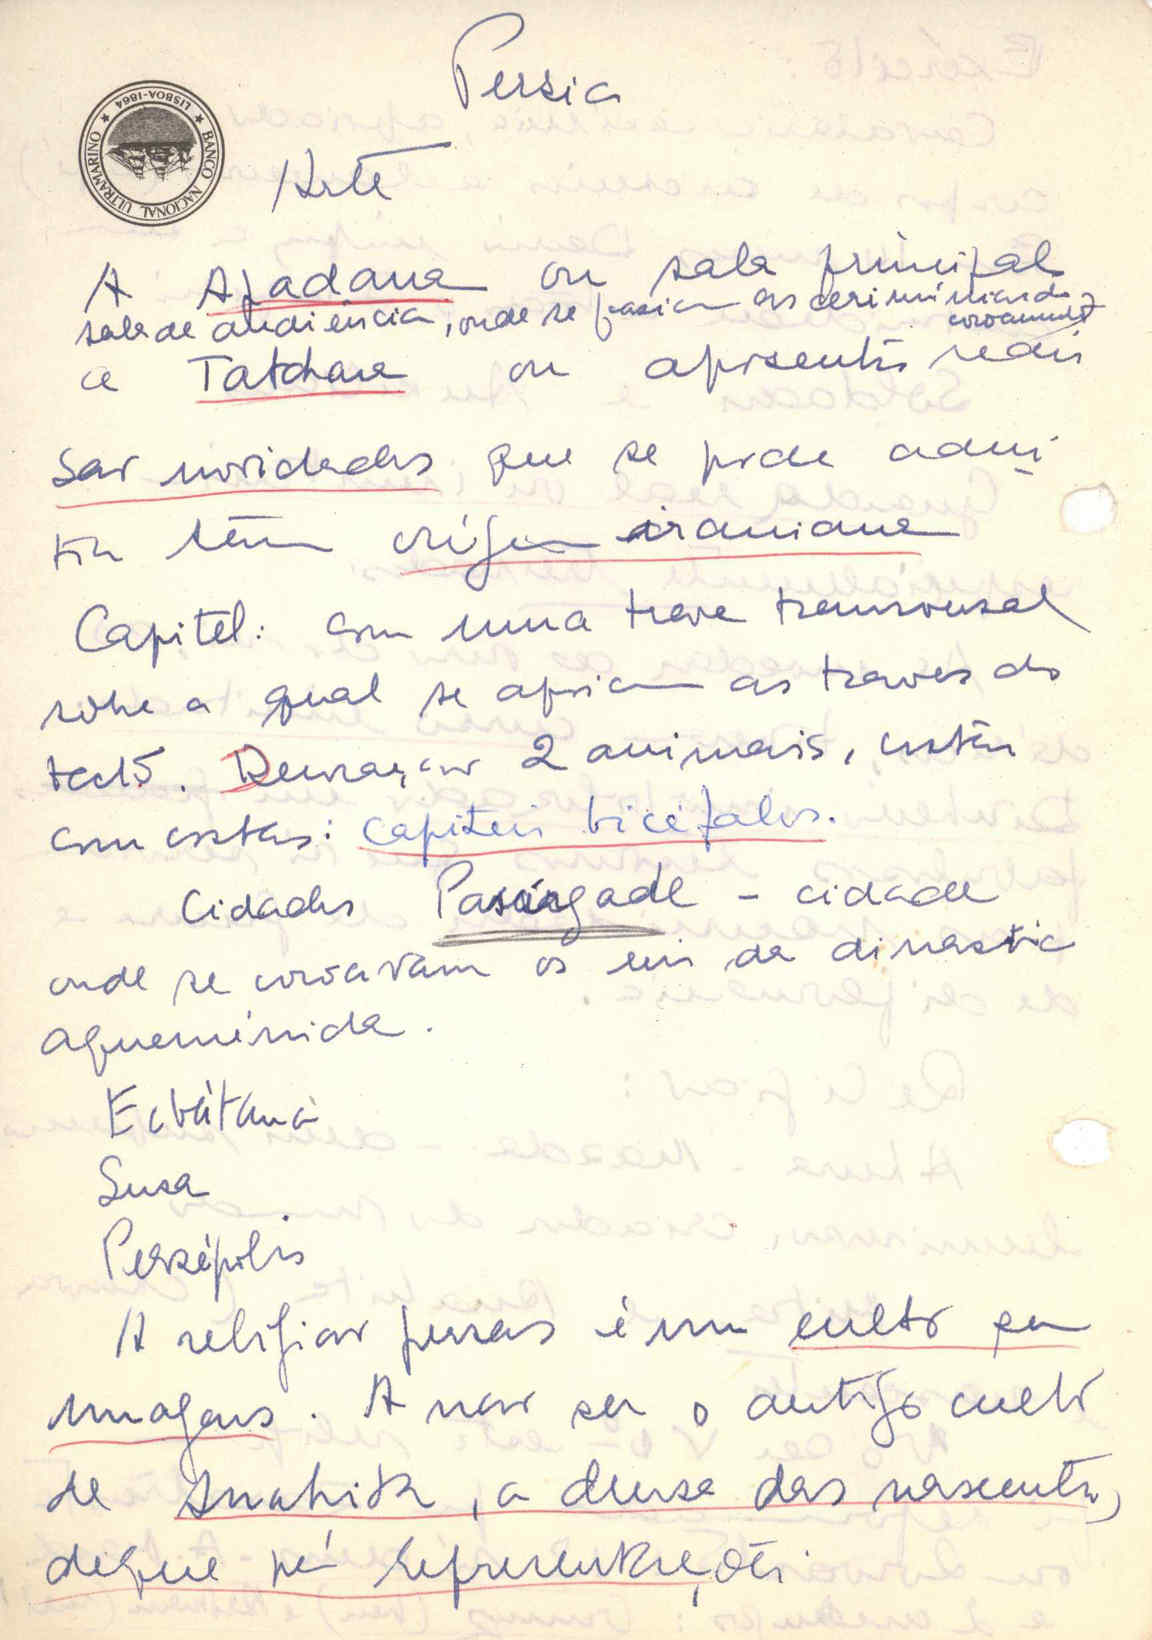 Persia
BANCO NACIONAL ULTRAMARINO
LISBOA-1864
Arte
A Apadana ou sala principal
sala de audiência, onde se faziam as cerimónias de
coroamento
a Tatchara ou aposentos reais
São novidades que se pode admi
tir têm origem iraniana
Capitel: com uma trave transversal
sobre a qual se apoiam as traves do
tecto. Decoração 2 animais, costas
com costas: capiteis bicéfalos.
Cidades Pasárgade - cidade
onde se coroavam os reis da dinastia
aqueménida.
Ecbátana
Susa
Persépolis
A religião persas é um culto sem
imagens. A não ser o antigo culto
de Anahita, a deusa das nascentes,
de que há representações